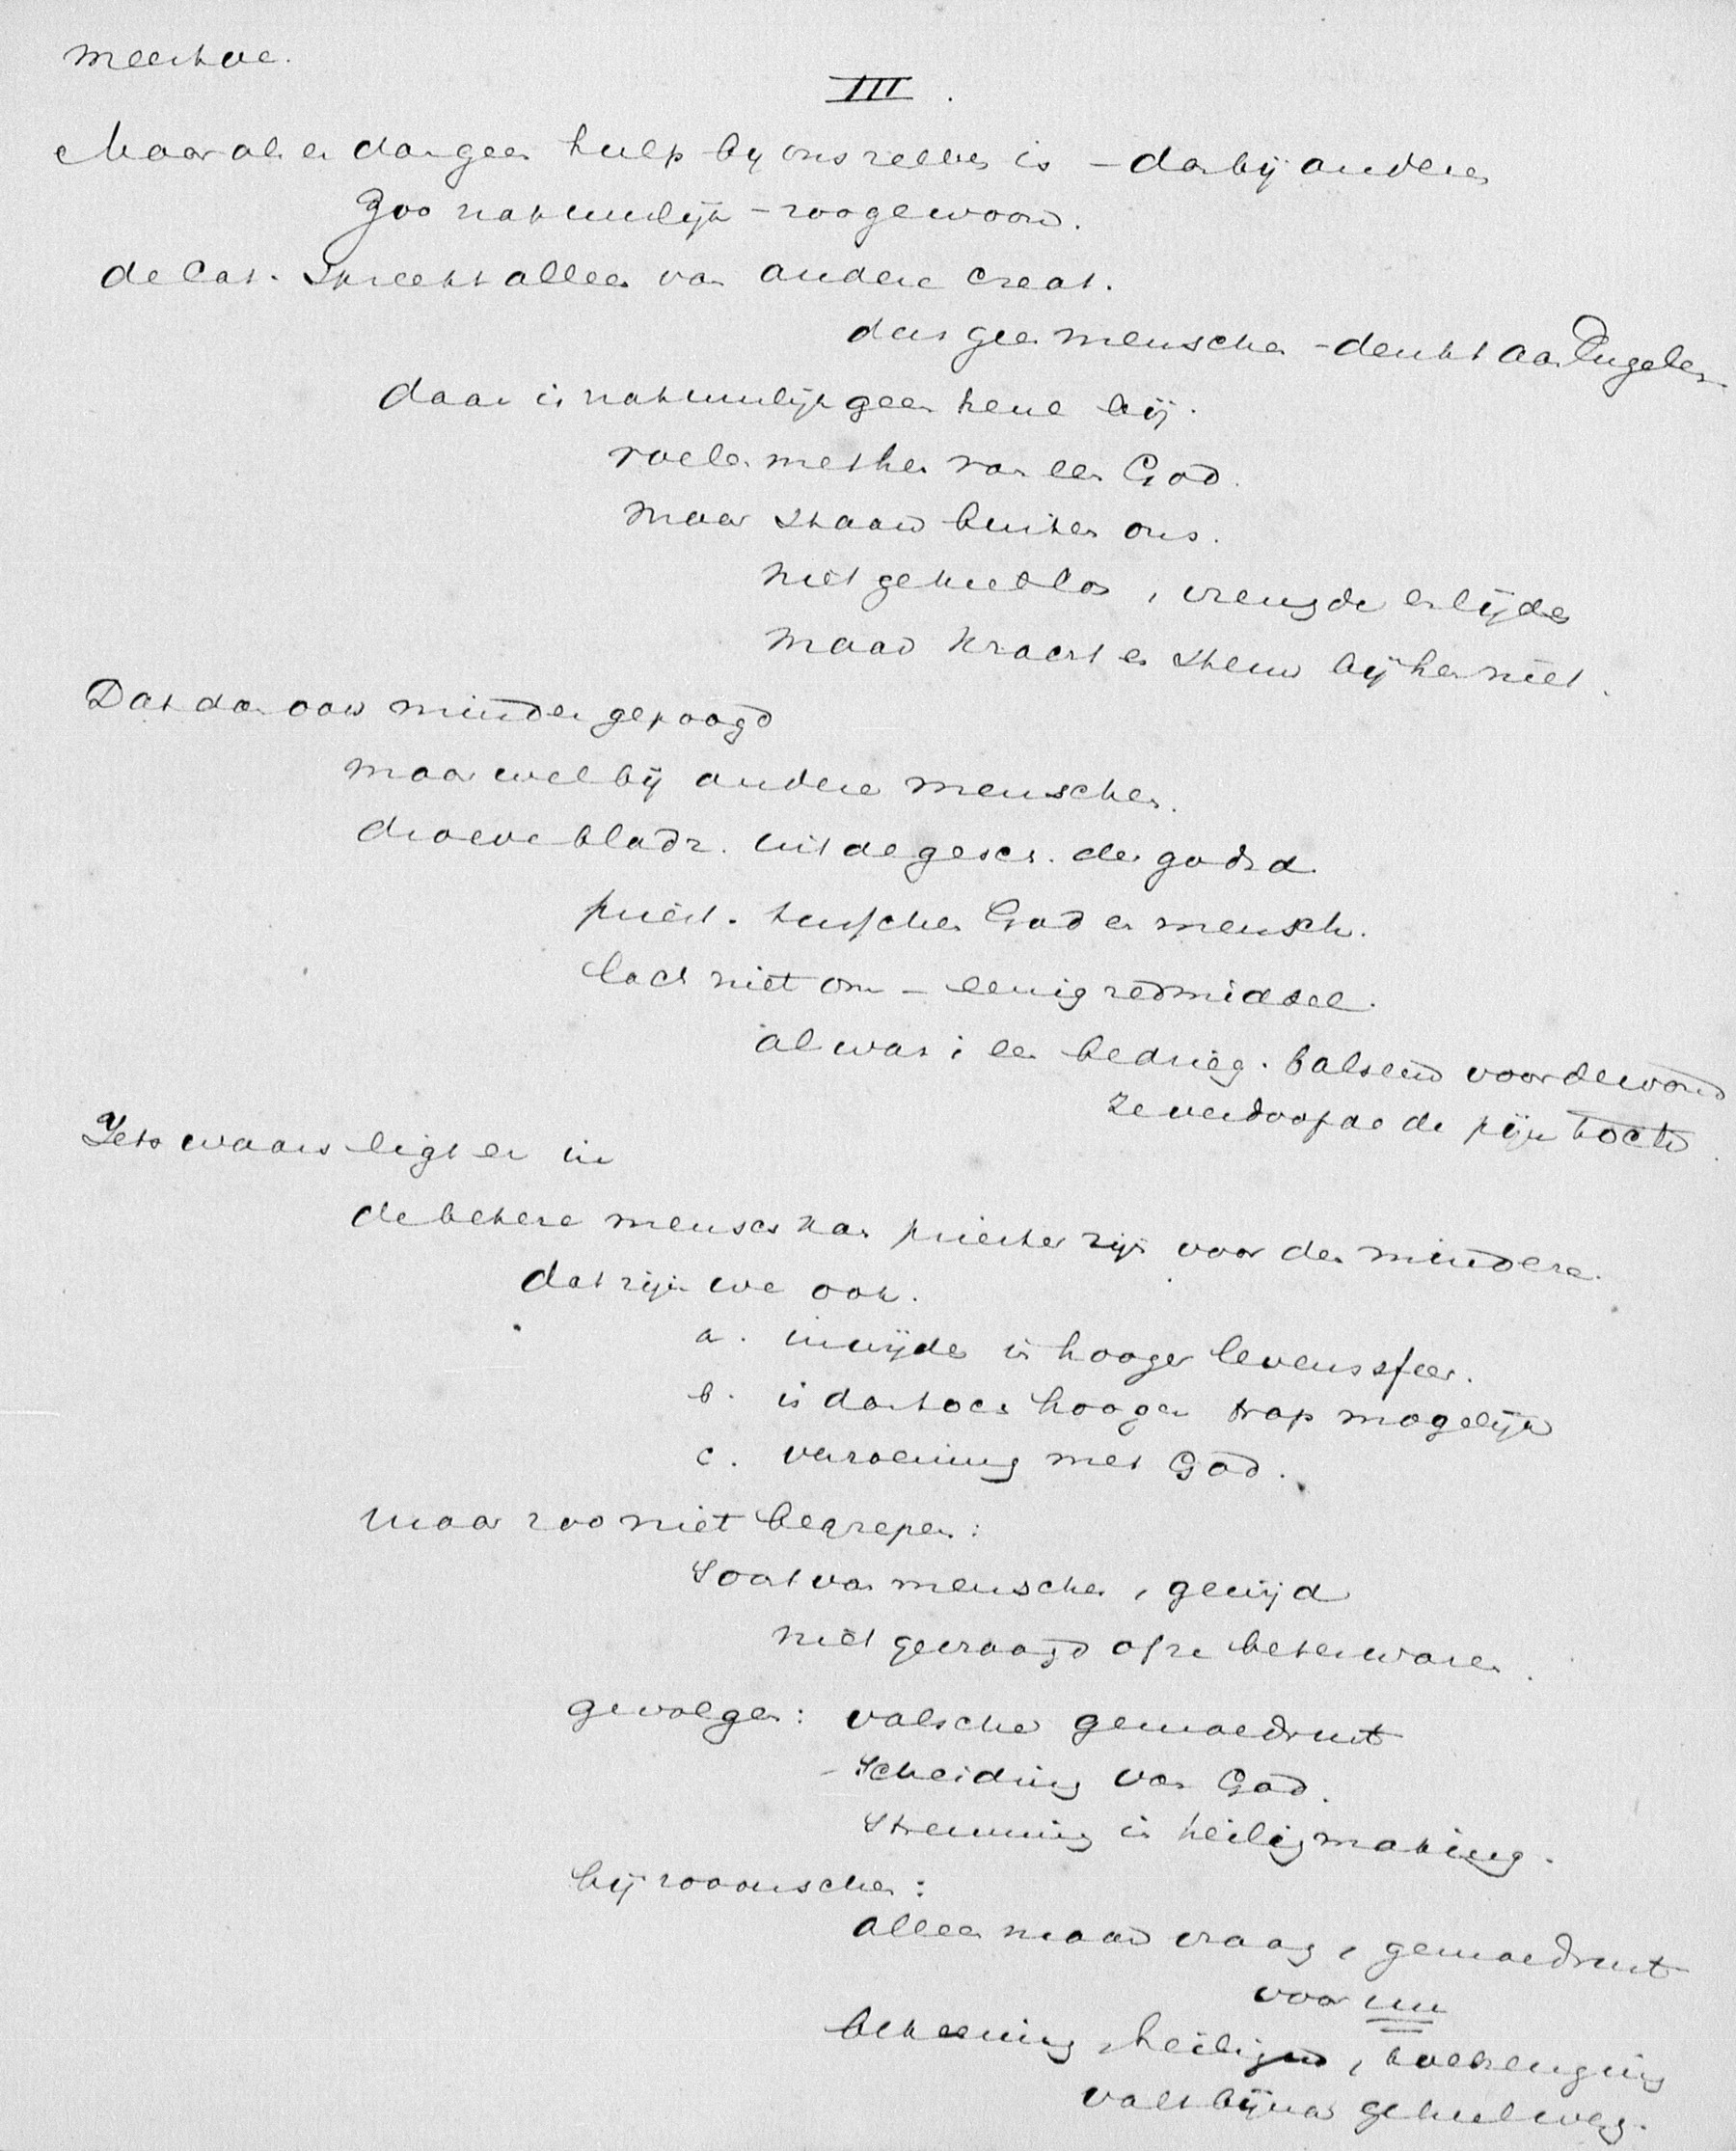 meer hoe.
III.
Maar als er dan geen hulp bij ons zelven is – dan bij anderen
Zoo natuurlijk – zoo gewoon.
de Cat. spreekt alleen van andere creat.
dus geen menschen – denkt aan Engelen
daar is natuurlijk geen heul bij.
voelen met hen van een God.
maar staan buiten ons.
niet gebeel los, vreugde en lijden
maar kracht en steun bij hen niet.
Dat dan ook minder gepoogd
maar wel bij andere menschen.
droeve bladz. uit de gesch. der godsd.
priest. tusschen God en mensch.
lach niet om – eenig redmiddel.
al was 't een bedrieg. balsem voor de wond
ze verdoofde de pijn toch.
Iets waars ligt er in
de betere mensch kan priester zijn voor den mindere.
dat zijn we ook.
a. inwijden in hooger levenssfeer.
b. is dan toch hooger trap mogelijk
c. verzoening met God.
maar zoo niet begrepen:
Soort van menschen, gewijd
niet gevraagd of ze beter waren.
gevolgen: valsche gemoedsrust
– Scheiding van God.
Stremming in heiligmaking.
bij roomschen:
alleen maar vraag, gemoedsrust
voor nu
bekeering, heiliging, toebrenging
valt bijna geheel weg.